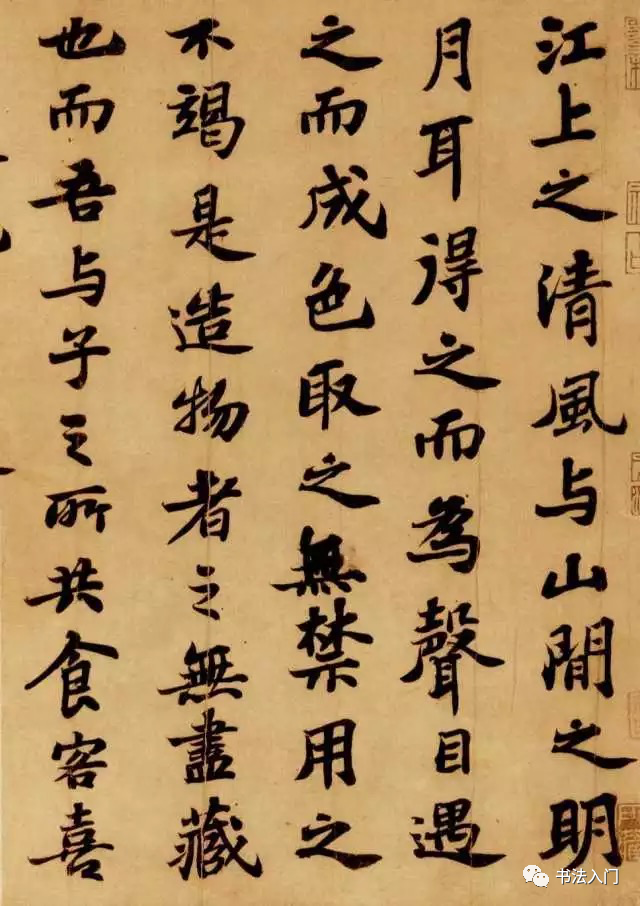 江上之清風与山間之明
月耳得之而為聲目遇
之而成色取之無禁用之
不竭是造物者之無盡藏
也而吾与子之所共食客喜
书法入门